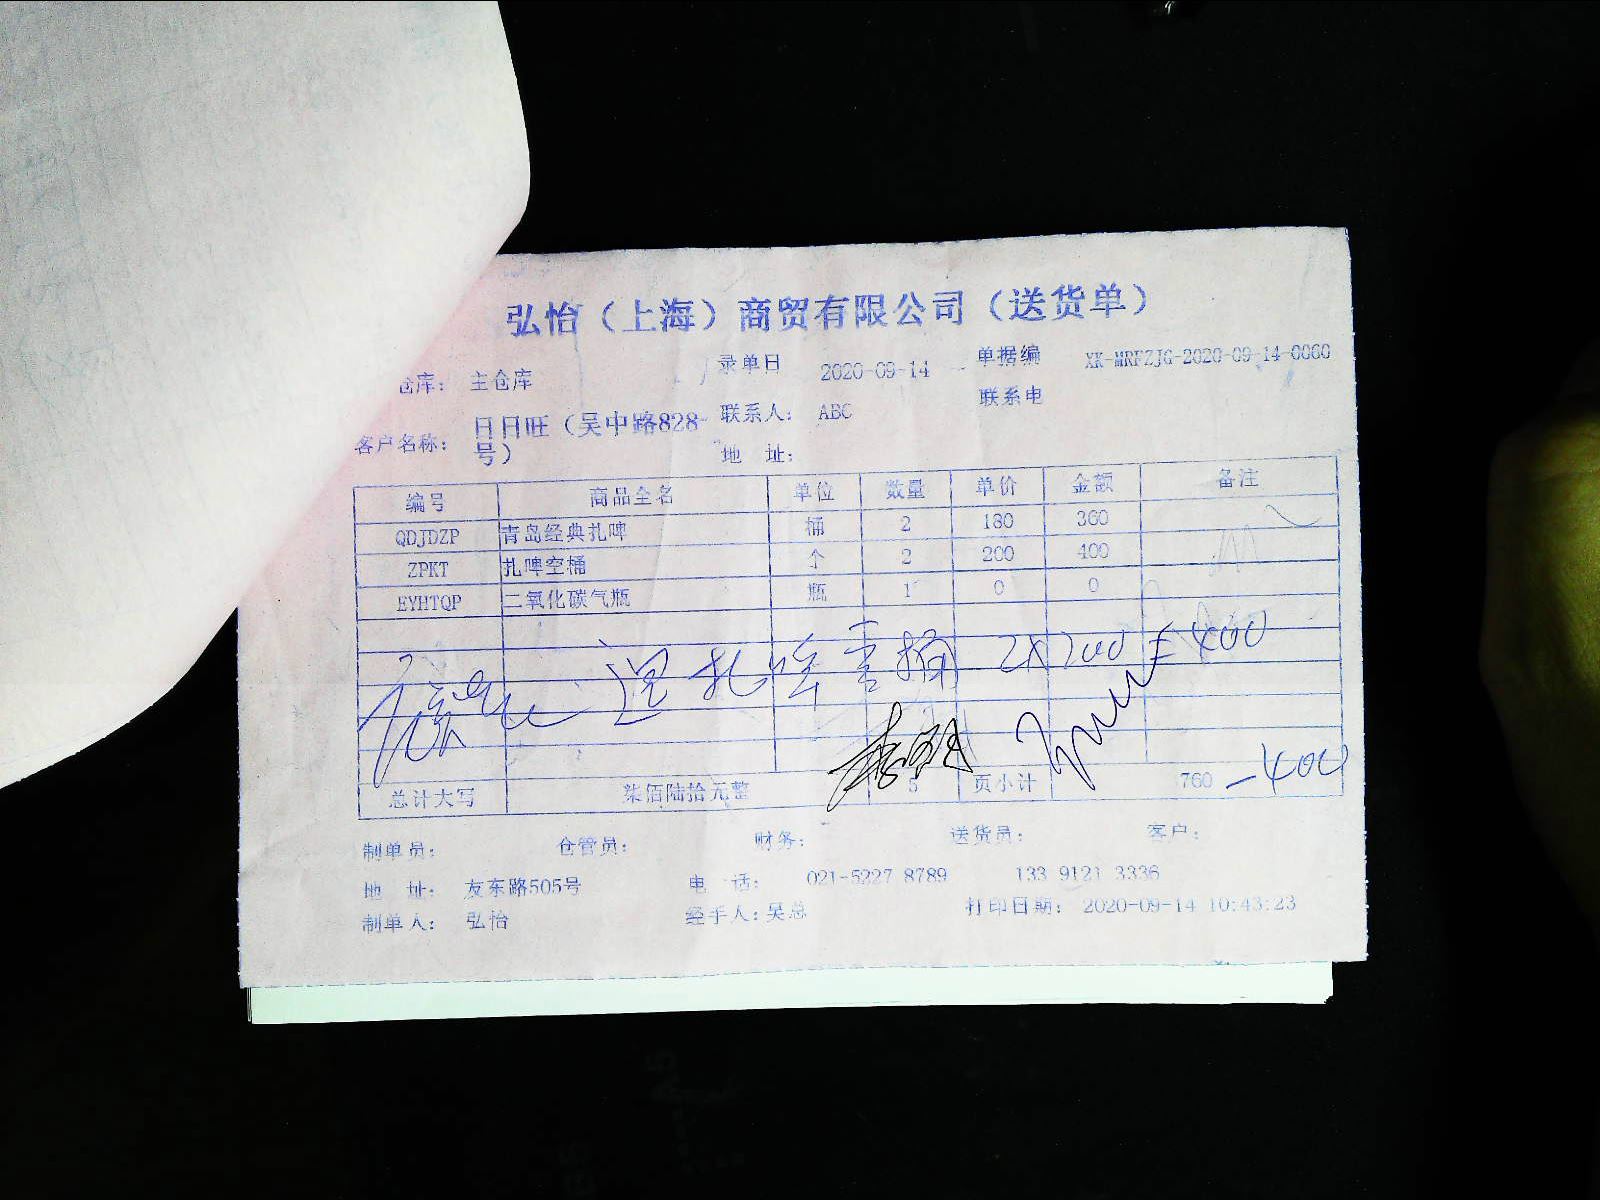 弘怡（上海）商贸有限公司（送货单）
仓库： 主仓库 录单日 2020-09-14 单据编 XK-MRFZJG-2020-09-14-0060
客户名称： 日日旺（吴中路828号） 联系人： ABC 联系电
地 址：
编号 商品全名 单位 数量 单价 金额 备注
QDJDZP 青岛经典扎啤 桶 2 180 360
ZPKT 扎啤空桶 个 2 200 400
EYHTQP 二氧化碳气瓶 瓶 1 0 0
退扎啤空桶 2X200=400
总计大写 柒佰陆拾元整 5 页小计 760 -400
制单员： 仓管员： 财务： 送货员： 客户：
地 址： 友东路505号 电 话： 021-5227 8789 133 9121 3336
制单人： 弘怡 经手人：吴总 打印日期： 2020-09-14 10:43:23